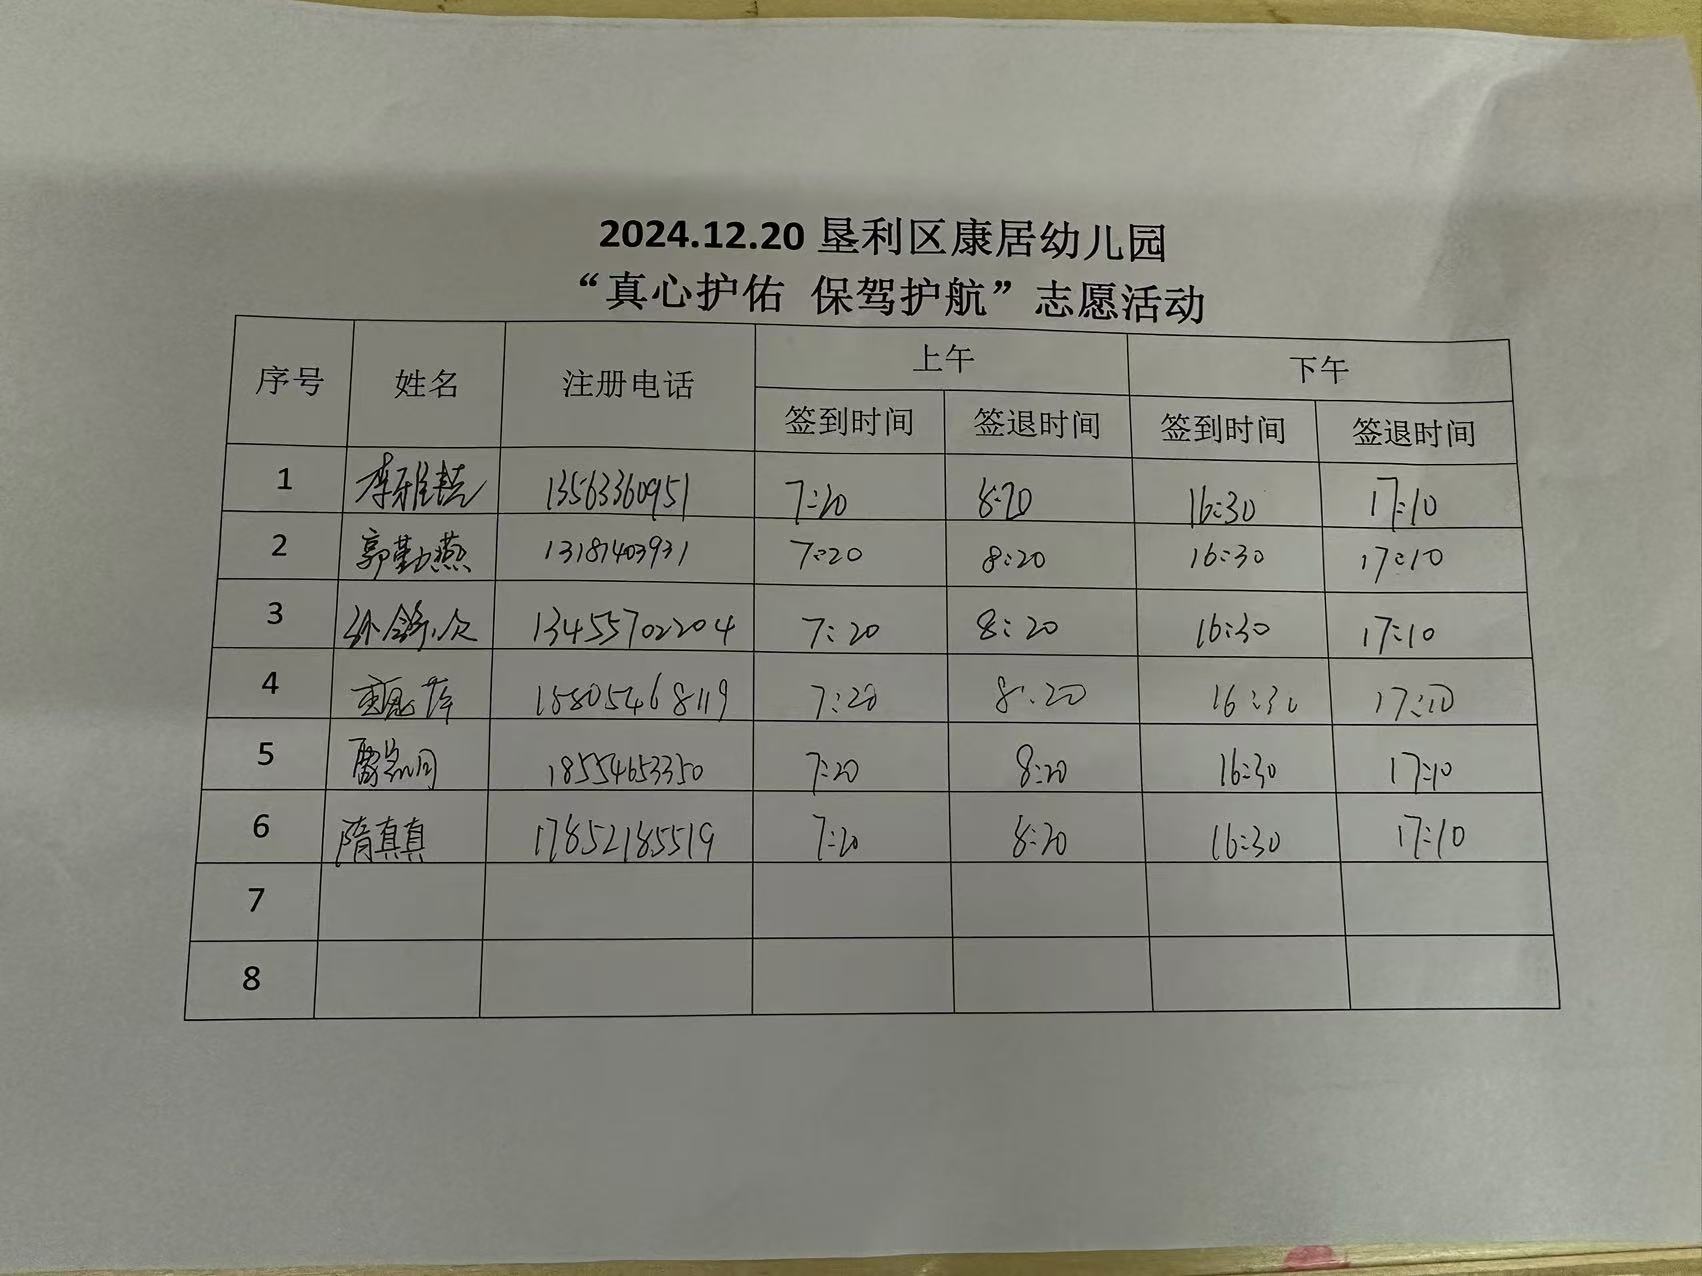 2024.12.20 垦利区康居幼儿园
“真心护佑 保驾护航”志愿活动
序号 姓名 注册电话 上午 下午
签到时间 签退时间 签到时间 签退时间
1 李雅喆 13563360951 7:20 8:20 16:30 17:10
2 郭勤燕 13181403931 7:20 8:20 16:30 17:10
3 13455702204 7:20 8:20 16:30 17:10
4 15805468119 7:20 8:20 16:30 17:10
5 18554653350 7:20 8:20 16:30 17:10
6 隋真真 17852185519 7:20 8:20 16:30 17:10
7
8